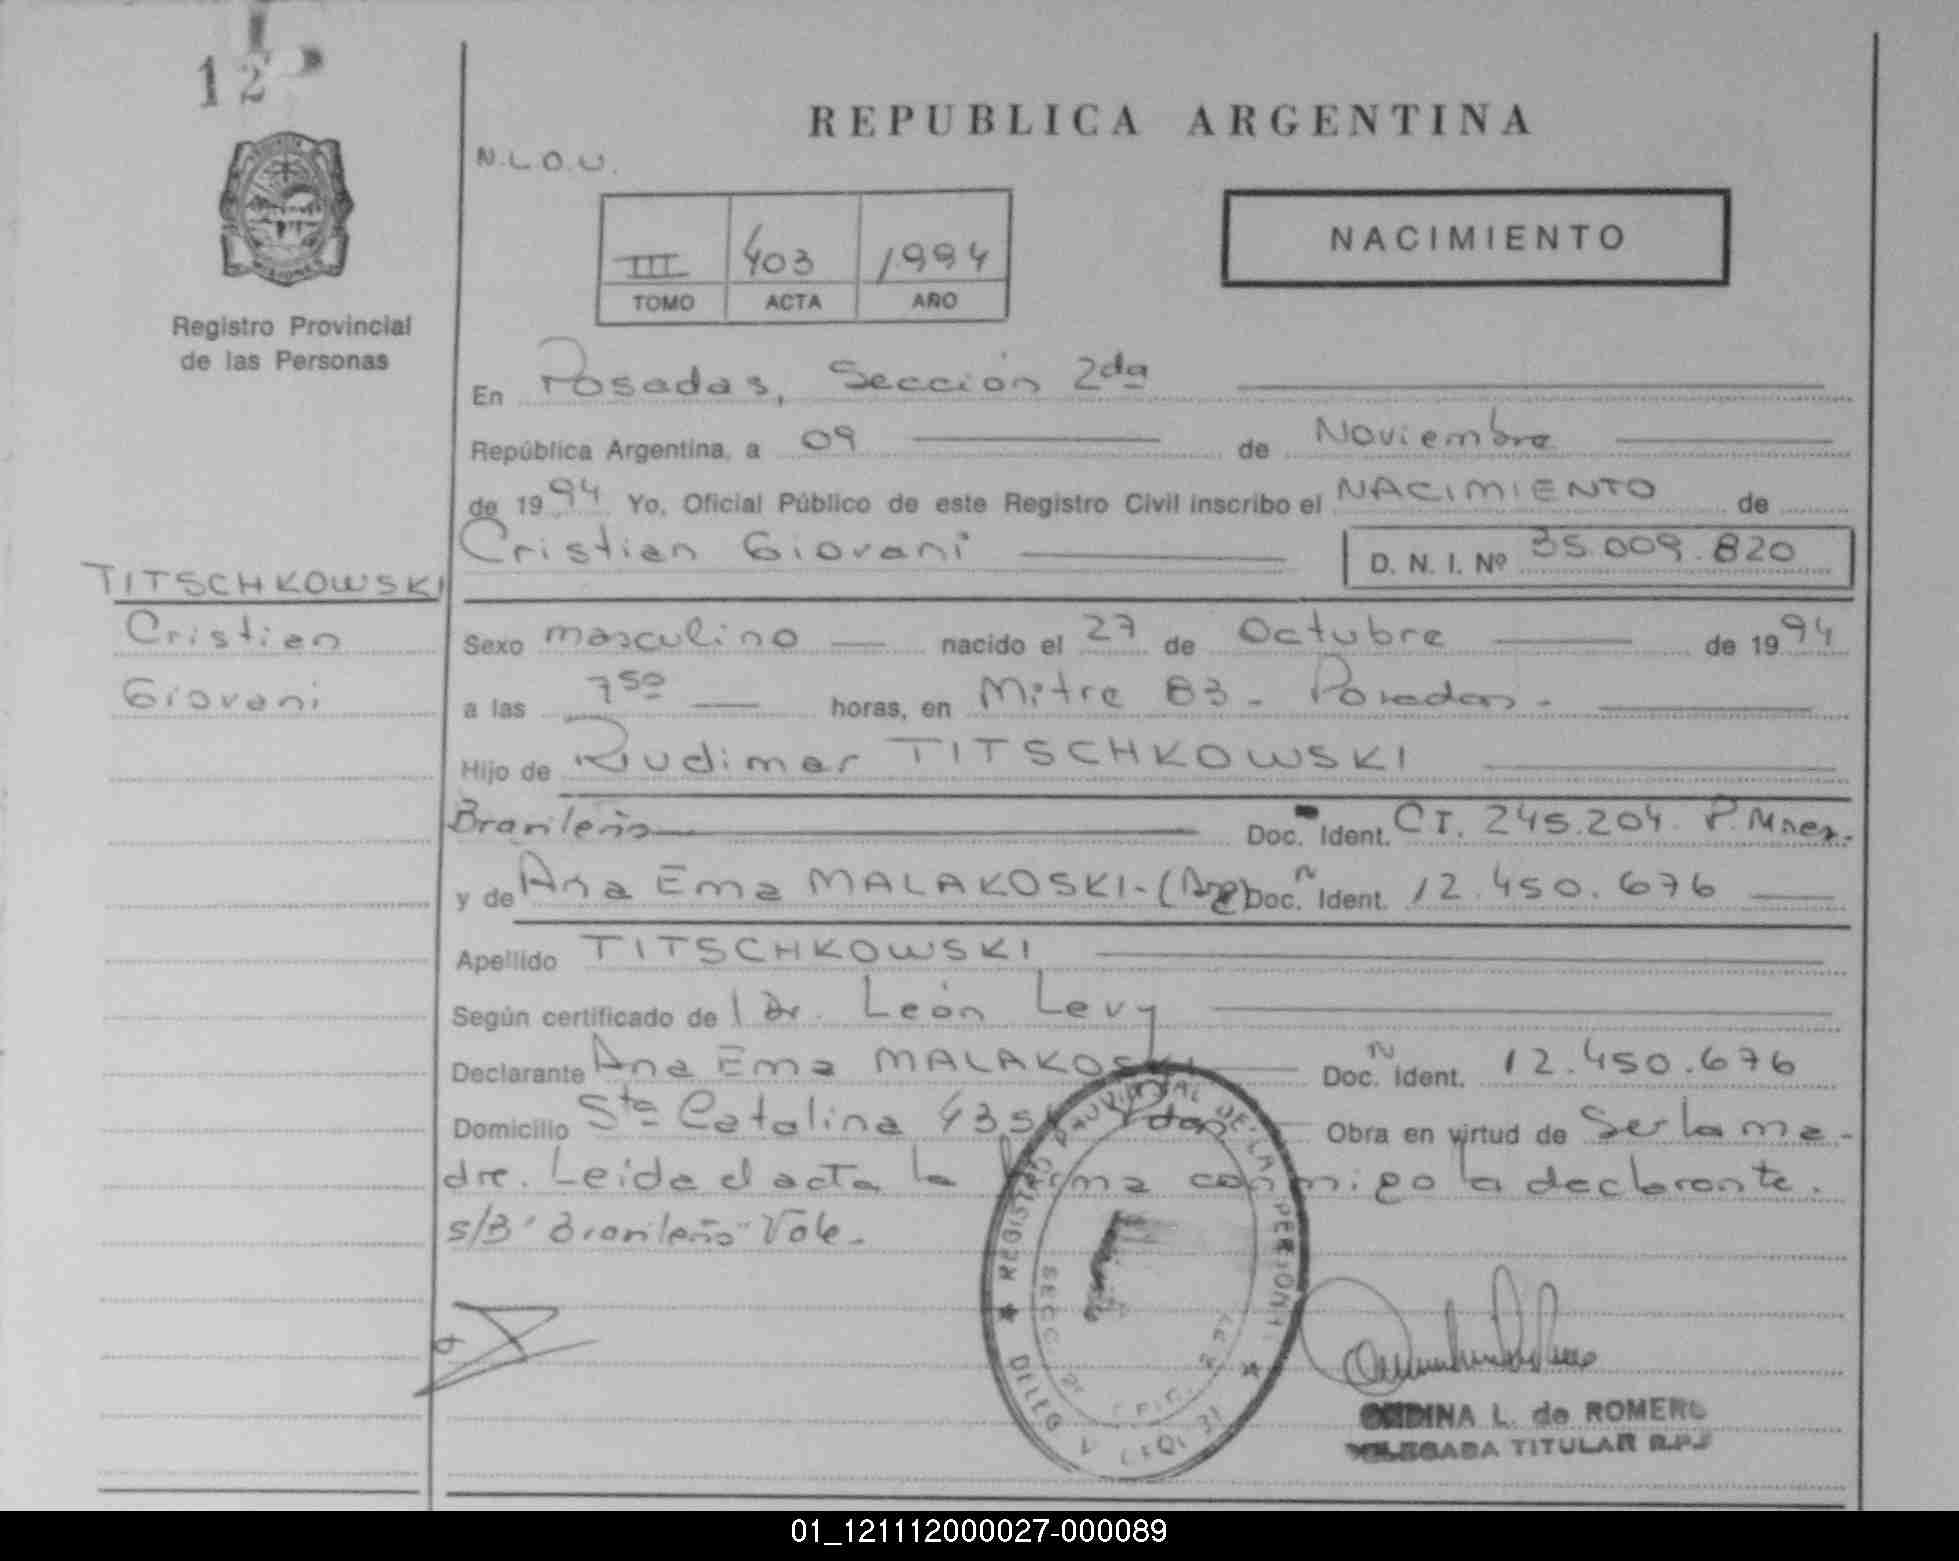 12
REPUBLICA ARGENTINA
N.L.O.U.
III 403 1994
TOMO ACTA AÑO
NACIMIENTO
Registro Provincial
de las Personas
En Posadas, Sección 2da
República Argentina, a 09 de Noviembre
de 1994 Yo, Oficial Público de este Registro Civil inscribo el NACIMIENTO de
Cristian Giovani D. N. I. Nº 35.009.820
TITSCHKOWSKI
Cristian
Giovani
Sexo masculino nacido el 27 de Octubre de 1994
a las 7 50 horas, en Mitre 83 - Posadas -
Hijo de Rudimar TITSCHKOWSKI
Brasileño Doc. Ident. CI. 245.204. P. Mnes.
y de Ana Ema MALAKOSKI - (Arg) Doc. Ident. 12.450.676
Apellido TITSCHKOWSKI
Según certificado de l Dr. León Levy
Declarante Ana Ema MALAKOSKI Doc. Ident. 12.450.676
Domicilio Sta Catalina 435 Pdas Obra en virtud de Ser la ma-
dre. Leida el acta la firma conmigo la declarante.
s/B "Brasileño" Vale.
REGISTRO PROVINCIAL DE LAS PERSONAS
SECC. 2
ONDINA L. de ROMERO
DELEGADA TITULAR R.P.P
01_121112000027-000089